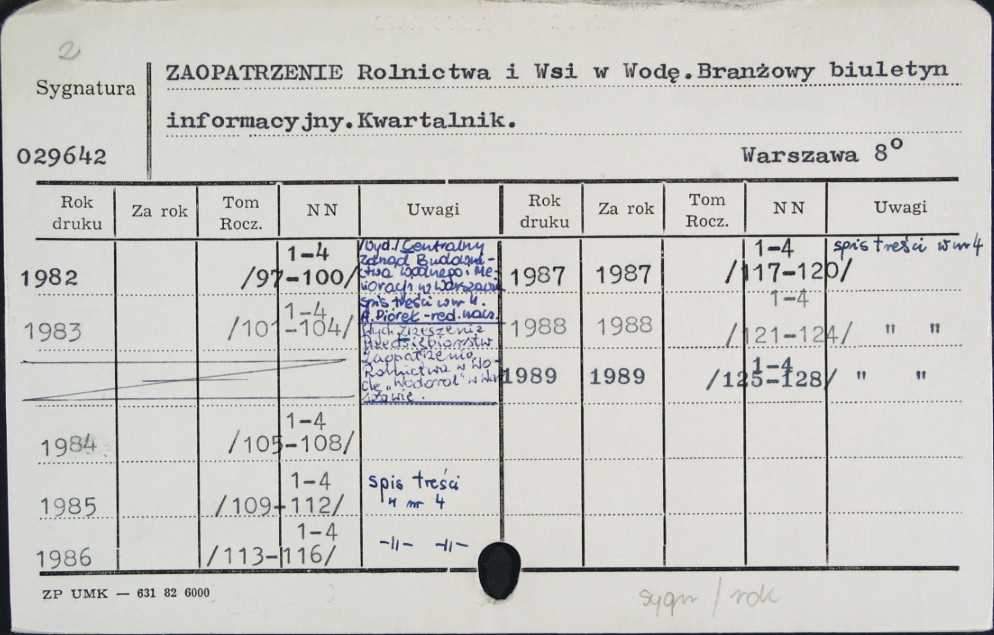 2
Sygnatura
ZAOPATRZENIE Rolnictwa i Wsi w Wodę.Branżowy biuletyn
informacyjny.Kwartalnik.
029642
Warszawa 8°
Rok druku Za rok Tom Rocz. NN Uwagi Rok druku Za rok Tom Rocz. NN Uwagi
1982 /97-100/ 1-4
/Wyd./Centralny
Zarząd Budowni-
ctwa Wodnego i Me-
lioracji w Warszawie
spis treści w nr 4.
A. Piórek-red. nacz.
1983 /101-104/ 1-4
Wyd. Zrzeszenie
Przedsiębiorstw
Zaopatrzenia
Rolnictwa w Wo-
dę "Wodrol" w War-
szawie.
1984 /105-108/ 1-4
1985 /109-112/ 1-4 spis treści
w nr 4
1986 /113-116/ 1-4 -"- -"-
1987 1987 /117-120/ 1-4 spis treści w nr 4
1988 1988 /121-124/ 1-4 " "
1989 1989 /125-128/ 1-4 " "
ZP UMK — 631 82 6000
sygn / rok